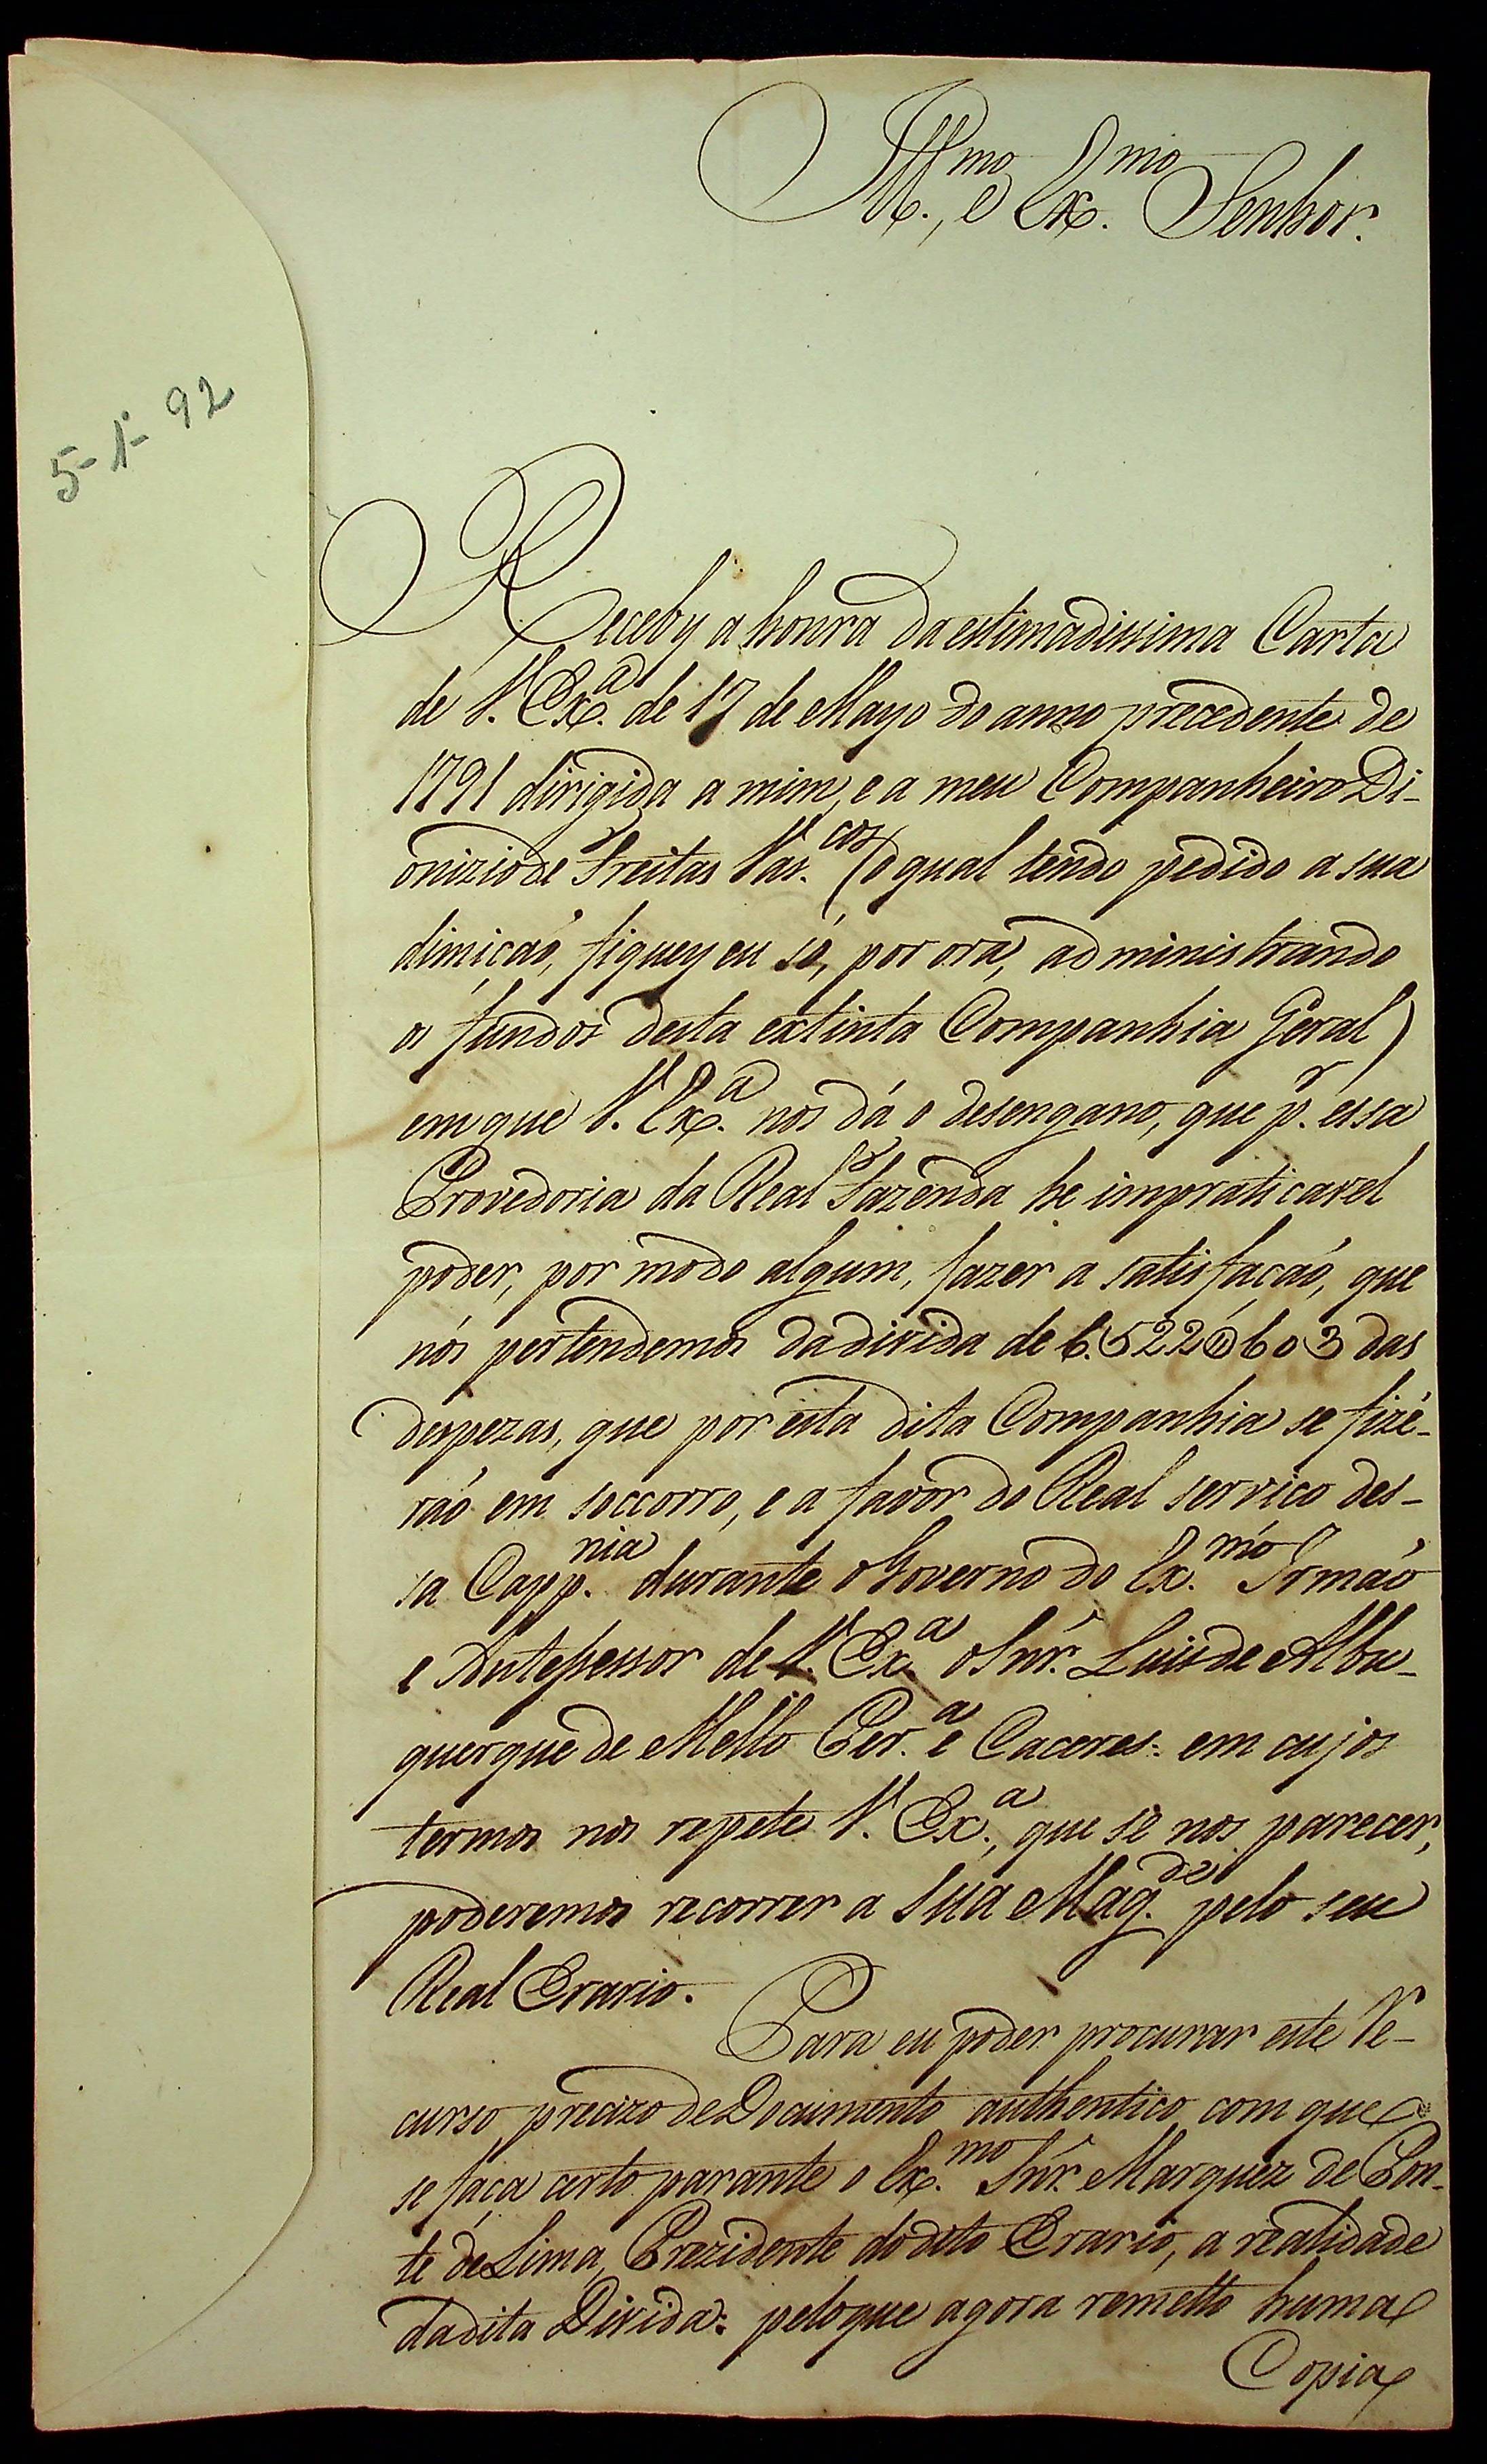 Ill.mo, e Ex.mo Senhor.
5-1-92
Receby a honra da estimadissima Carta
de V. Ex.a de 17 de Mayo do anno precedente de
1791 dirigida a mim, e a meu Companheiro Di-
onizio de Freitas Vas.cos (o qual tendo pedido a sua
dimicaõ, fiquey eu só, por ora, administrando
os fundos desta extinta Companhia Geral)
em que V. Ex.a nos dá o desengano, que p.r essa
Provedoria da Real Fazenda he impraticavel
poder, por modo algum, fazer a satisfaçaõ, que
nós pertendemos da divida de 6.522$603 das
despezas, que por esta dita Companhia se fizé-
raõ em soccorro, e a favor do Real serviço des-
sa Capp.nia durante o Governo do Ex.mo Irmaõ
e Antessessor de V. Ex.a o Snr. Luis de Albu-
querque de Mello Per.a e Caceres: em cujos
termos nos repete V. Ex.a, que se nos parecer,
poderemos recorrer a Sua Mag.de pelo seu
Real Erario.
Para eu poder procurar este Re-
curso, precizo de Documento authentico com que
se faça certo parante o Ex.mo Snr. Marquez de Pon-
te de Lima, Prezidente do dito Erario, a realidade
da dita Divida: pelo que agora remetto huma
Copia